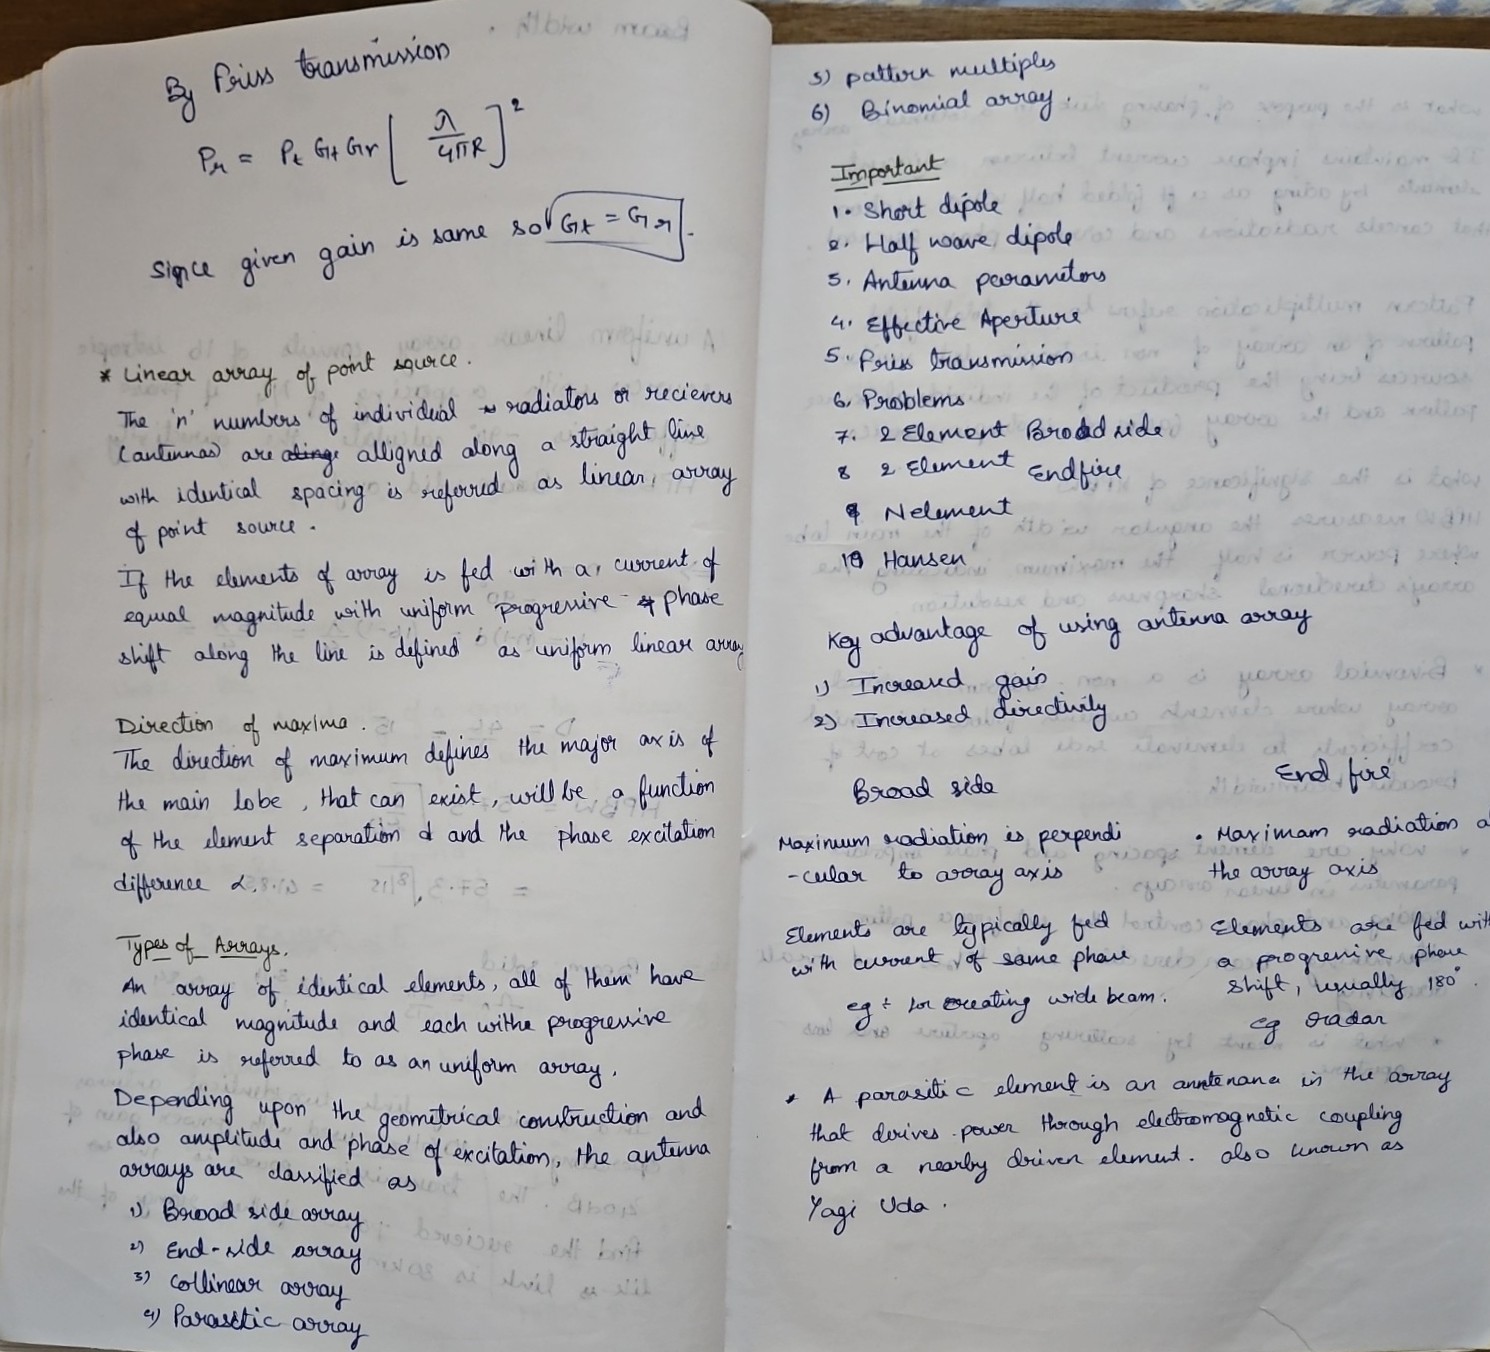 By Friss transmission
Pr = Pt Gt Gr [ λ / 4πR ]²
Since given gain is same so Gt = Gr.
* Linear array of point source.
The 'n' numbers of individual radiators or recievers
(antennas) are alligned along a straight line
with identical spacing is referred as linear array
of point source.
If the elements of array is fed with a current of
equal magnitude with uniform progressive phase
shift along the line is defined as uniform linear array
Direction of maxima.
The direction of maximum defines the major axis of
the main lobe, that can exist, will be a function
of the element separation d and the phase excitation
difference α.
Types of Arrays.
An array of identical elements, all of them have
identical magnitude and each withe progressive
phase is referred to as an uniform array.
Depending upon the geometrical construction and
also amplitude and phase of excitation, the antenna
arrays are classified as
1) Broad side array
2) End-side array
3) Collinear array
4) Parasitic array
5) pattern multiples
6) Binomial array.
Important
1. Short dipole
2. Half wave dipole
3. Antenna parameters
4. Effective Aperture
5. Friss transmission
6. Problems
7. 2 Element Broad side
8 2 Element Endfire
9 N element
10 Hansen
Key advantage of using antenna array
1) Increased gain
2) Increased directivity
Broad side
Maximum radiation is perpendi
-cular to array axis
Elements are typically fed
with current of same phase
eg: for creating wide beam.
End fire
• Maximam radiation
the array axis
Elements are fed with
a progressive phase
shift, usually 180°.
eg radar
* A parasitic element is an anntenana in the array
that derives power through electromagnetic coupling
from a nearby driven element. also known as
Yagi Uda.